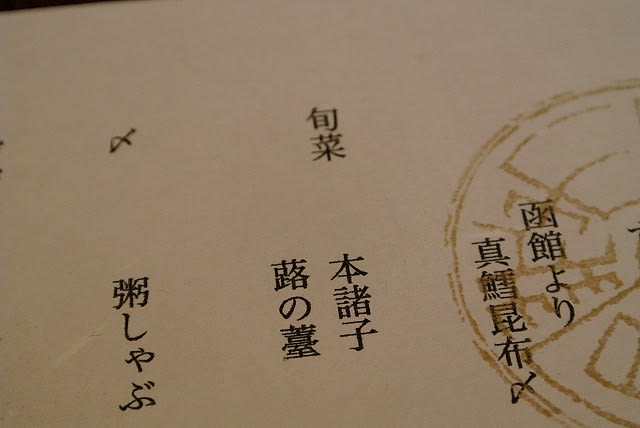 函館より
真鱈昆布〆
旬菜
本諸子
蕗の薹
〆
粥しゃぶ